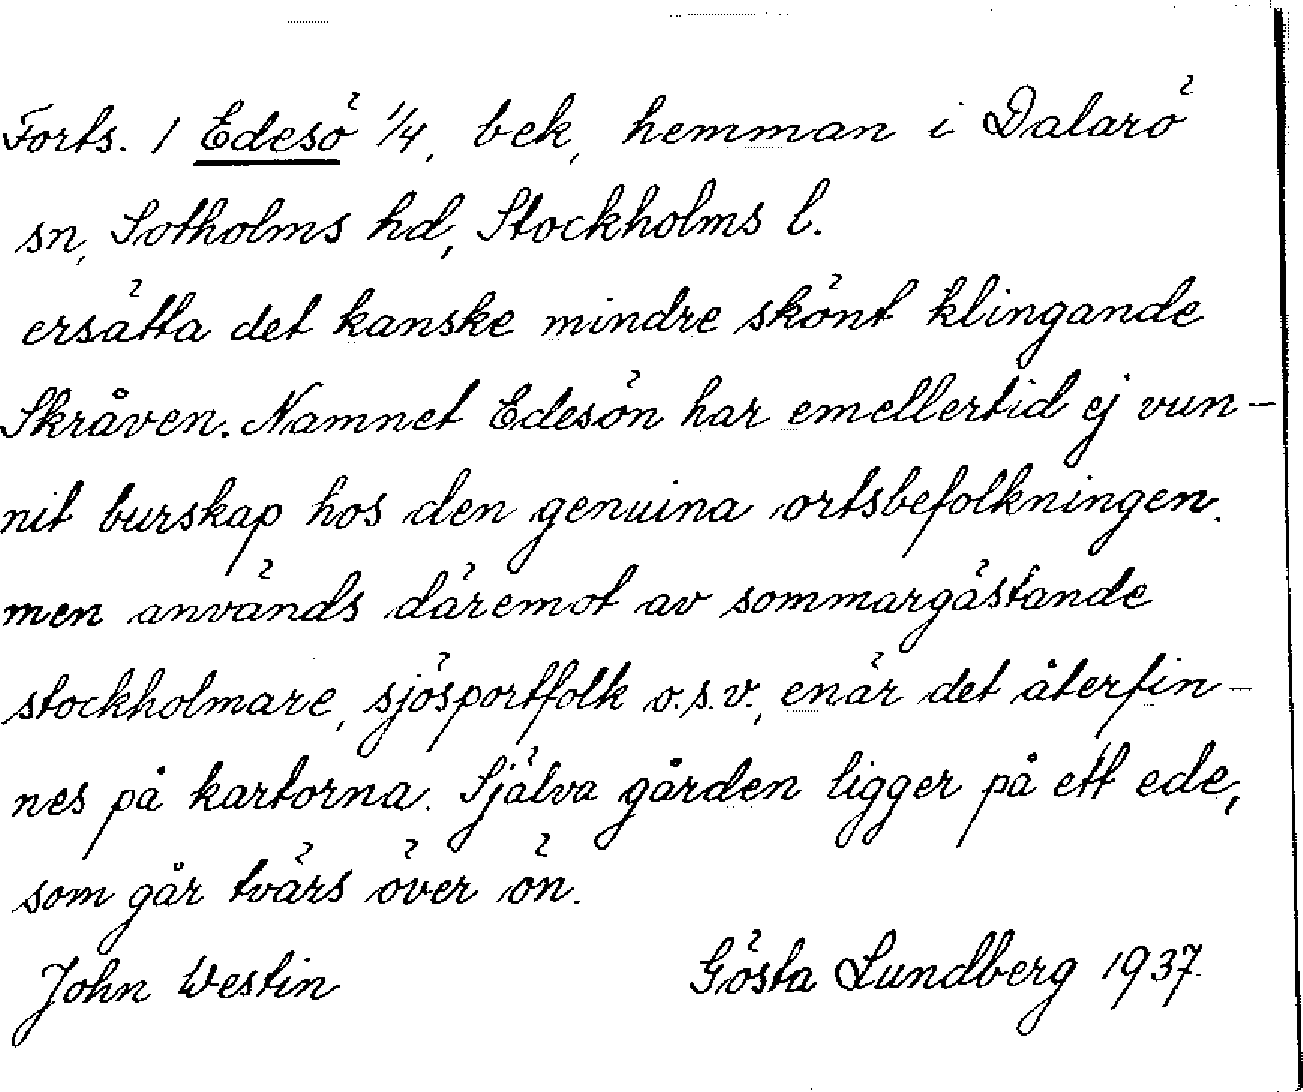 Forts. 1 Edesö 1/4, bek, hemman i Dalarö
sn, Sotholms hd, Stockholms l.
ersätta det kanske mindre skönt klingande
Skråven. Namnet Edesön har emellertid ej vun-
nit burskap hos den genuina ortsbefolkningen.
men används däremot av sommargästande
stockholmare, sjösportfolk o.s.v., enär det återfin-
nes på kartorna. Själva gården ligger på ett ede,
som går tvärs över ön.
John Westin Gösta Lundberg 1937.